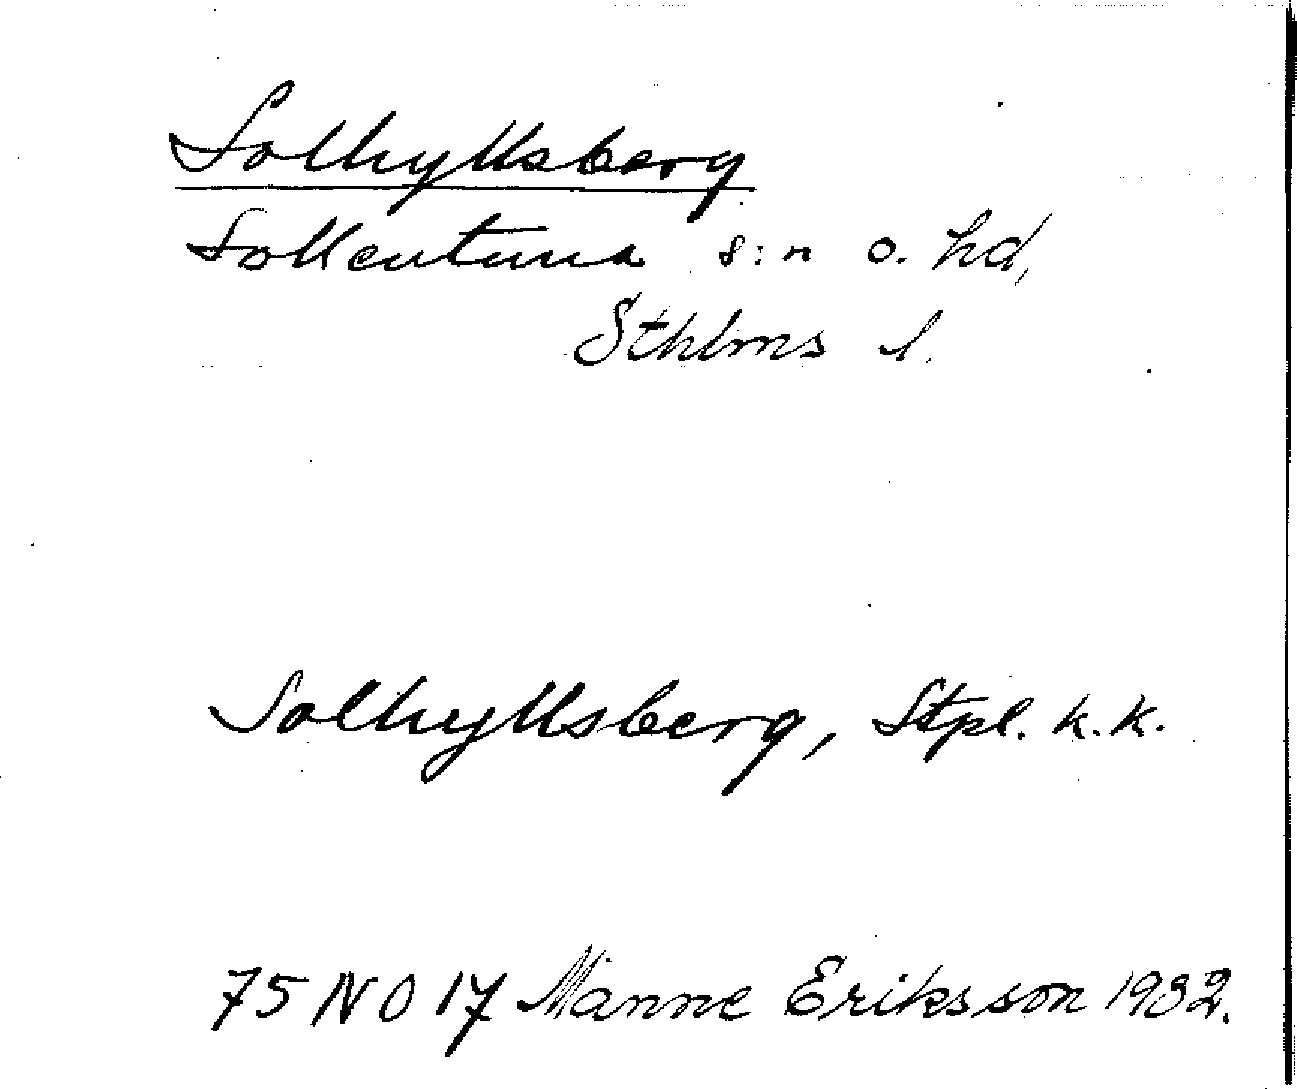 Solhyllsberg
Sollentuna s:n o. hd,
Sthlms l.
Solhyllsberg, Stpl. k.k.
75 NO 17 Manne Eriksson 1932.